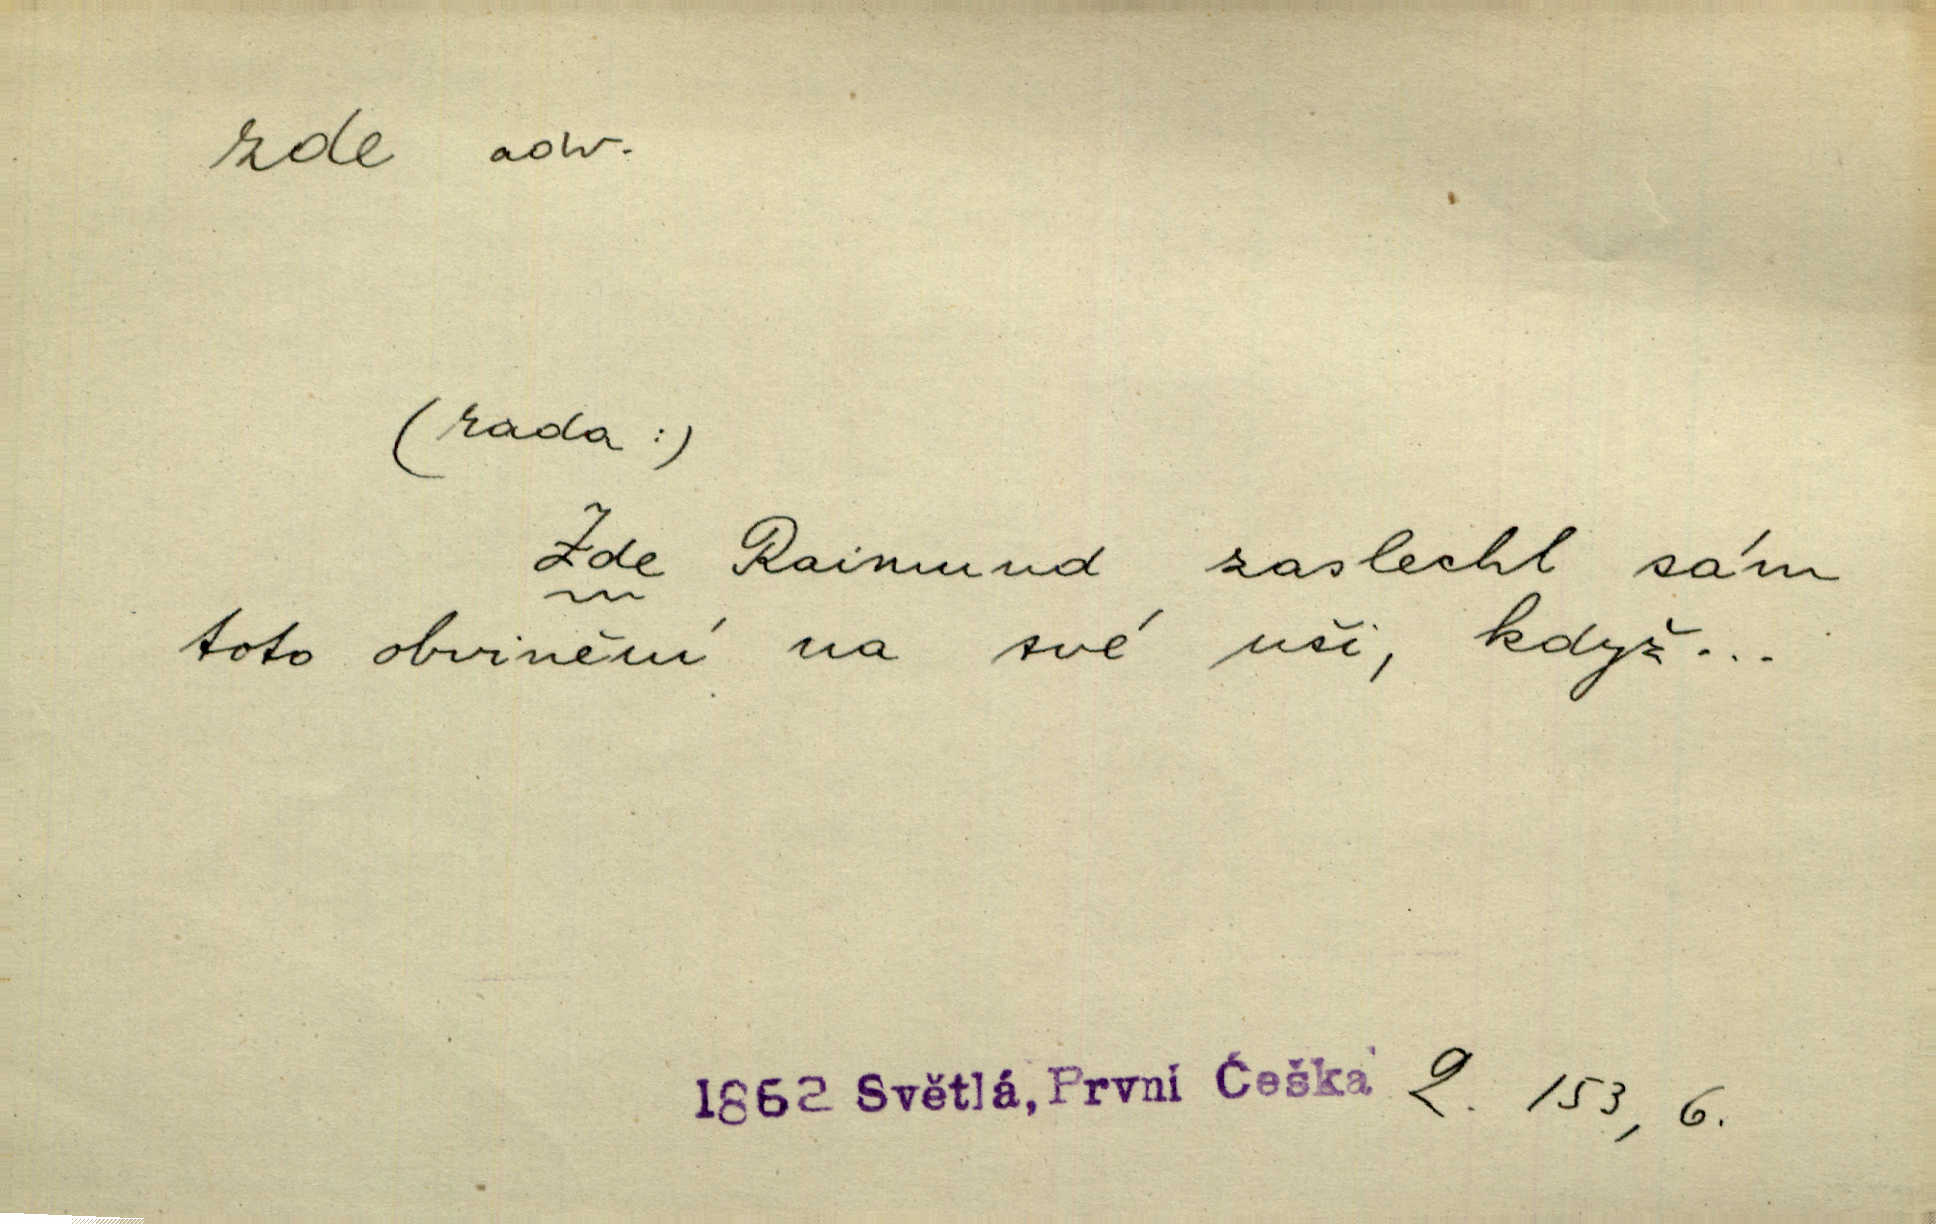 zde adv.
(rada:)
Zde Raimund zaslechl sám
toto obvinění na své uši, když...
1862 Světlá, První Češka 2. 153, 6.